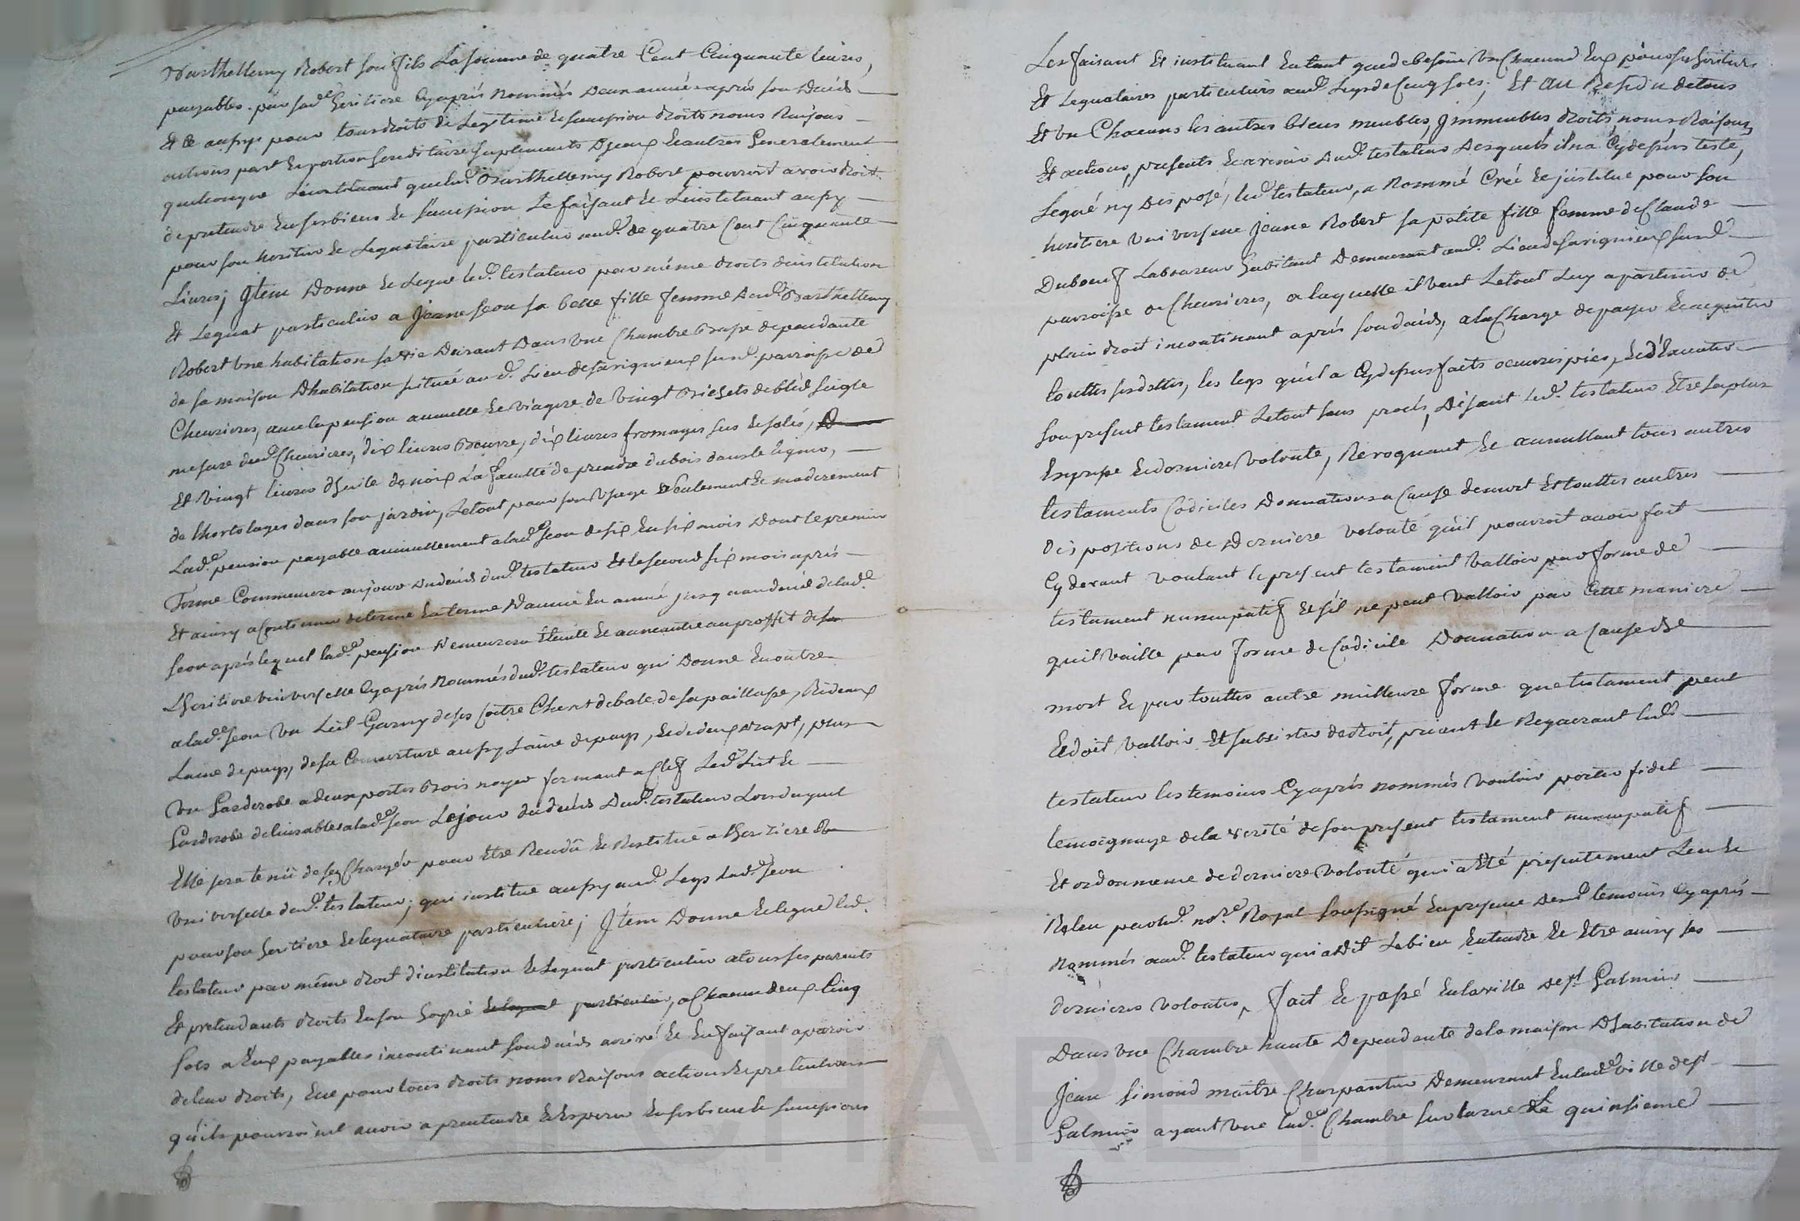 Barthellemy Robert son fils La somme de quatre Cent Cinquante livres,
payables par sad.e heritiere Cy aprés Nommée Dans année aprés son Decéds
Et Ce aussy pour tous droits de Legitime Succession droits noms Raisons
actions part Et portion hereditaire suplements D'yceux Et autres Generalement
quelconque L'instituant que led. Barthellemy Robert pourroit avoir droit
de pretendre En ses biens Et Succession Le faisant Et L'instituant aussy
pour son heritier Et Legataire particulier aud. de quatre Cent Cinquante
Livres; Jtem Donne Et Legue led. testateur par même droits d'institution
Et Leguat particulier a Jeanne Seon sa belle fille femme dud. Barthellemy
Robert Une habitation sa vie Durant Dans une Chambre Basse dependante
de sa maison D'habitation située aud. Lieu de Savignieux susd. parroisse de
Chevrieres, avec la pension annuelle Et Viagere de Vingt Bichets de bléd seigle
mesure dud. Chevrieres, dix livres Beurre, dix livres fromages secs Et salés,
Et Vingt livres d'huile de noix La faculté de prendre du bois dans le Ligner,
de L'hortolages dans son jardin, Le tout pour son Usage Seulement Et moderement
Lad.e pension payable annuellement a lad.e Seon de six En six mois Dont le premier
Terme Commencera au jour du deceds dud. testateur Et le second six mois aprés
Et ainsy a Continuer de terme En terme D'année En année jusqu'au deceds de lad.e
Seon aprés lequel lad.e pension demeurera Eteinte Et amortie au proffit de sa
Heritiere universelle Cy aprés Nommée dud. testateur qui Donne En outre
a lad.e Seon Un Lict Garny de ses Coitre Chevet de bale, de sa paillasse, Rideaux
Laine de pays, de sa Couverture aussy Laine de pays, Et de deux draps, plus
Un Garderobe a deux portes Bois noyer fermant a Clef Led. Lict Et
Garderobe delivrables a lad.e Seon Le jour du deceds dud. testateur Lors duquel
Elle sera tenüe de s'en Charger pour Etre Rendü Et Restitué a L'heritiere
Universelle dud. testateur; qui institue aussy aud. Legs lad.e Seon
pour son heritiere Et leguataire particuliere; Jtem Donne Et legue led.
testateur par même droit d'institution Et Leguat particulier a tous ses parents
Et pretendants droits En son hoirie particulier, a Chacun d'eux Cinq
sols a Eux payables incontinant son deceds arrivé Et En faisant aparoir
de leur droits, Et ce pour tous droits noms Raisons actions Et pretentions
qu'ils pourroient avoir a pretendre Et Esperer En ses biens Et Successions
Les faisant Et instituant En tant que de besoin Un Chacun d'Eux pour ses heritiers
Et Leguataires particuliers aud. Legs de Cinq sols; Et Au Residu de tous
Et Un Chacuns les autres biens meubles, Jmmeubles droits noms Raisons
Et actions, presents Et avenir dud. testateur Desquels il n'a Cy dessus testé,
Legué n'y Disposé, led. testateur, a Nommé Créé Et jnstitue pour son
heritiere Universelle Jeanne Robert sa petite fille femme de Claude
Duboeuf Laboureur habitant Demeurant aud. Lieu de Savignieux susd.
parroisse de Chevrieres, a laquelle il veut Le tout Luy apartenir de
plain droit incontinant aprés son deceds, a la Charge de payer Et acquiter
touttes ses dettes, les legs qu'il a Cy dessus faits oeuvres pies, Et d'Executer
son present testament Le tout sans procés, Disant led. testateur Etre sa plus
Expresse Et derniere Volonté, Revoquant Et annullant tous autres
testaments Codiciles Donnations a Cause de mort Et touttes autres
Dispositions de Derniere Volonté qu'il pourroit avoir fait
Cy devant voulant le present testament Valloir par forme de
testament nuncupatif Et s'il ne peut Valloir par Cette maniere
qu'il Vaille par forme de Codicile Donnation a Cause de
mort Et par touttes autre meilleure forme que testament peut
Et doit Valloir Et subsister de droit, priant Et Requerant led.
testateur les temoins Cy aprés nommés Vouloir porter fidel
temoignage de la verité de son present testament nuncupatif
Et ordonnance de derniere Volonté qui a Eté presentement Leu Et
Releu par led. no.re Royal Soussigné En presence desd. temoins Cy aprés
Nommés aud. testateur qui a dit Le bien Entendre Et Etre ainsy ses
dernieres Volontés, fait Et passé En la ville de St Galmier
Dans une Chambre haute Dependante de la maison D'habitation de
Jean Simond maitre Charpentier Demeurant En lad.e Ville de St
Galmier ayant Vüe lad.e Chambre sur la rue qui descend